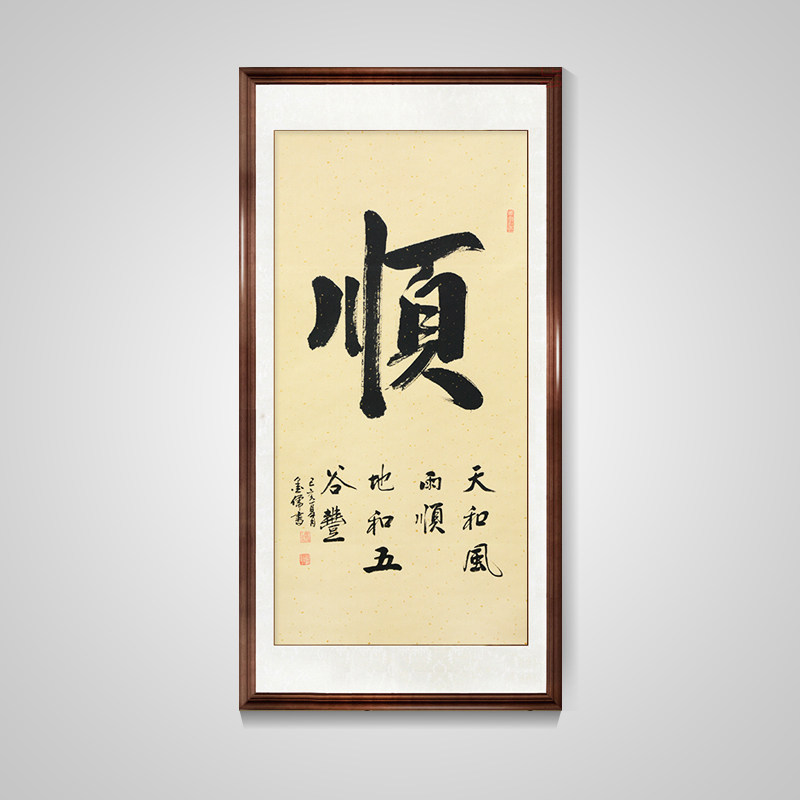 順
天和風
雨順
地和五
谷豐
己亥夏月
儒書